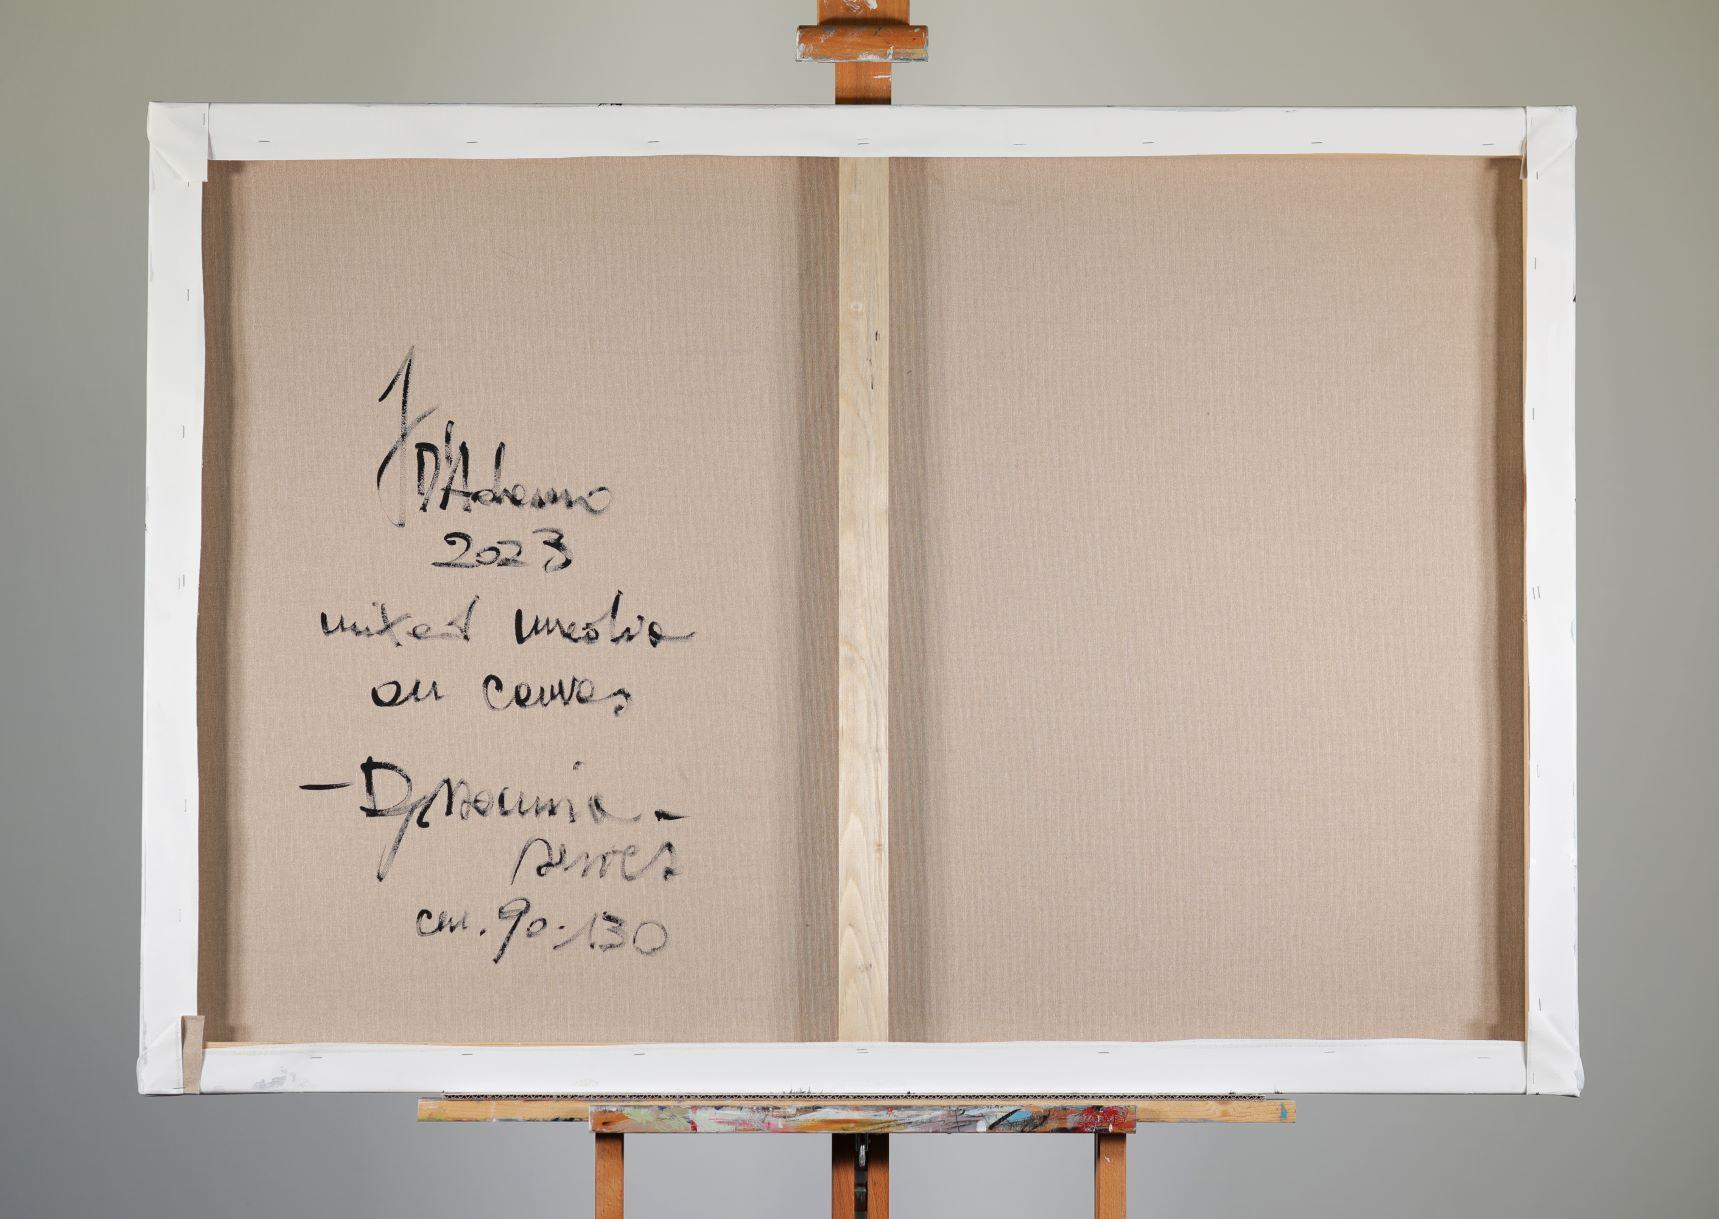 J D'Adamo
2023
mixed media
on canvas
series
cm. 90.130